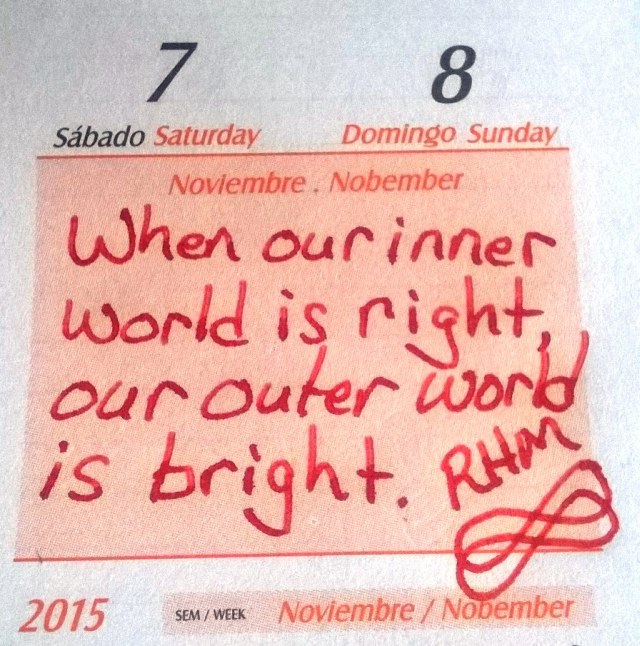 7 8
Sábado Saturday Domingo Sunday
Noviembre . Nobember
When our inner
world is right,
our outer world
is bright. RHM
2015 SEM / WEEK Noviembre / Nobember